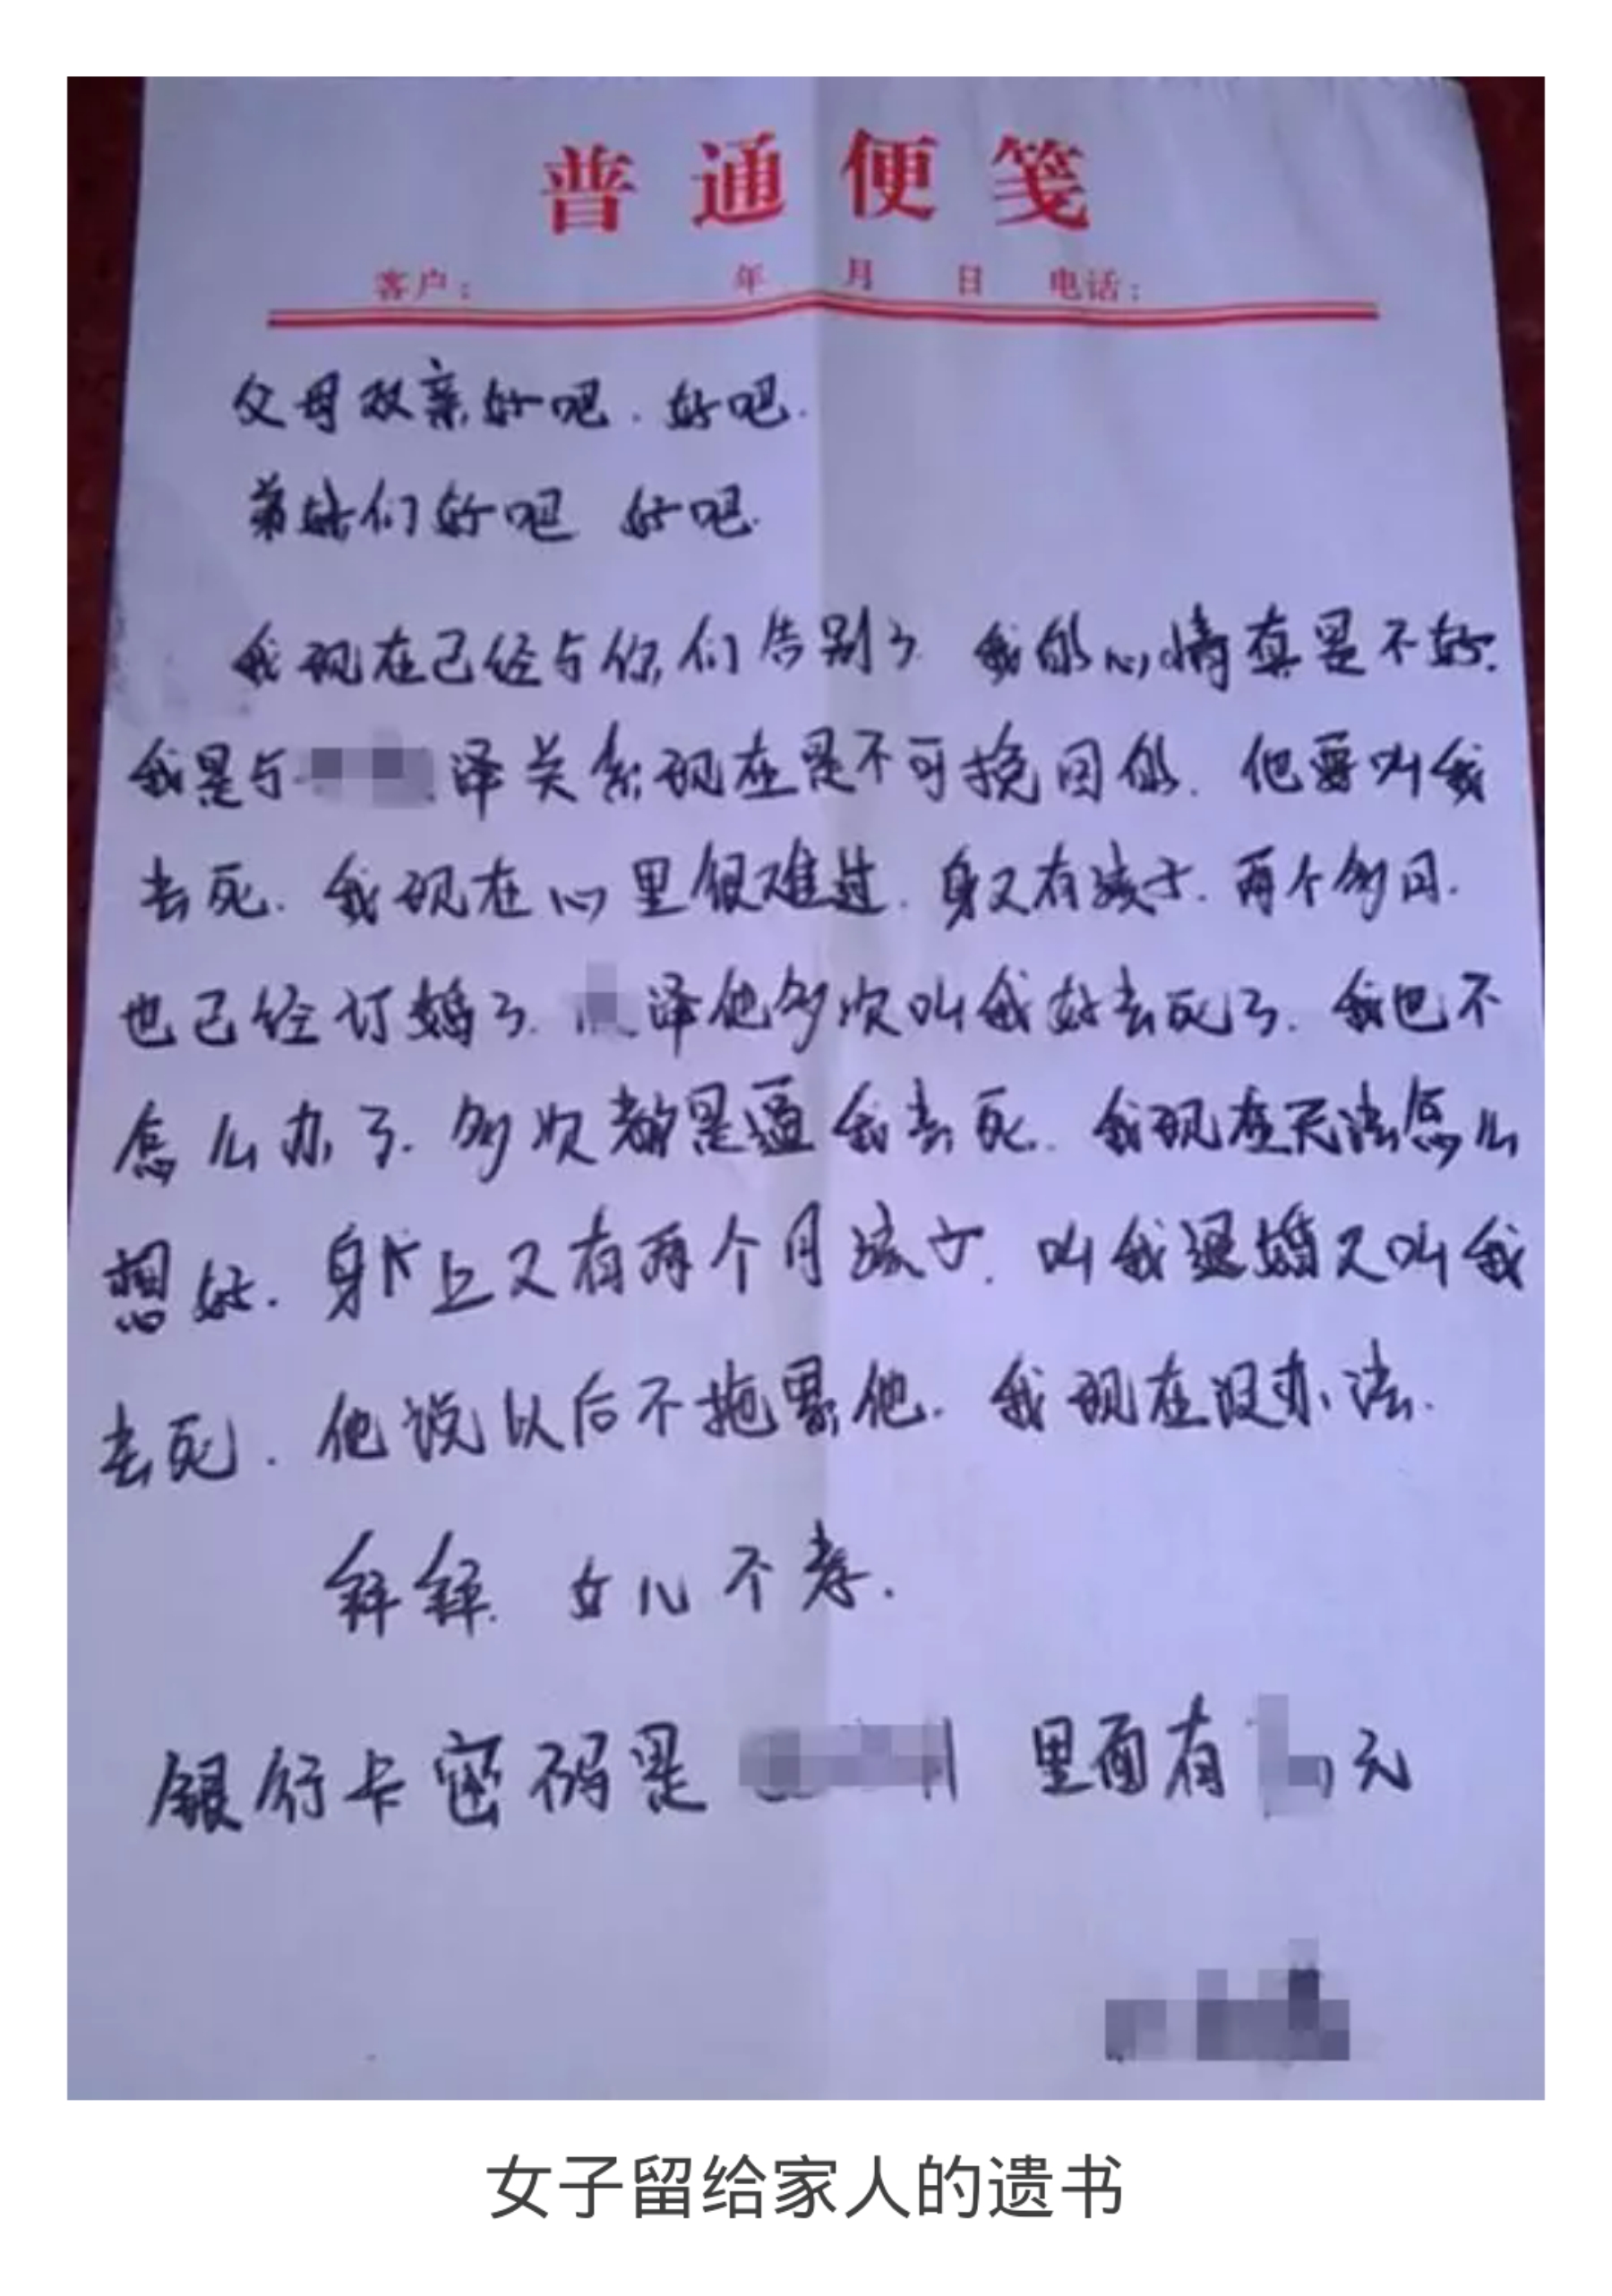 普通便笺
客户： 年 月 日 电话：
父母双亲好吧．好吧．
弟妹们好吧 好吧．
我现在已经与你们告别了 我的心情真是不好．
我是与 泽关系现在是不可挽回的．他要叫我
去死．我现在心里很难过．身又有孩子．两个多月．
也已经订婚了． 泽他多次叫我好去死了．我也不
怎么办了．多次都是逼我去死．我现在无法怎么
想好．身上又有两个月孩子．叫我退婚又叫我
去死．他说以后不拖累他．我现在没办法．
女儿不孝．
银行卡密码是 里面有 元
女子留给家人的遗书